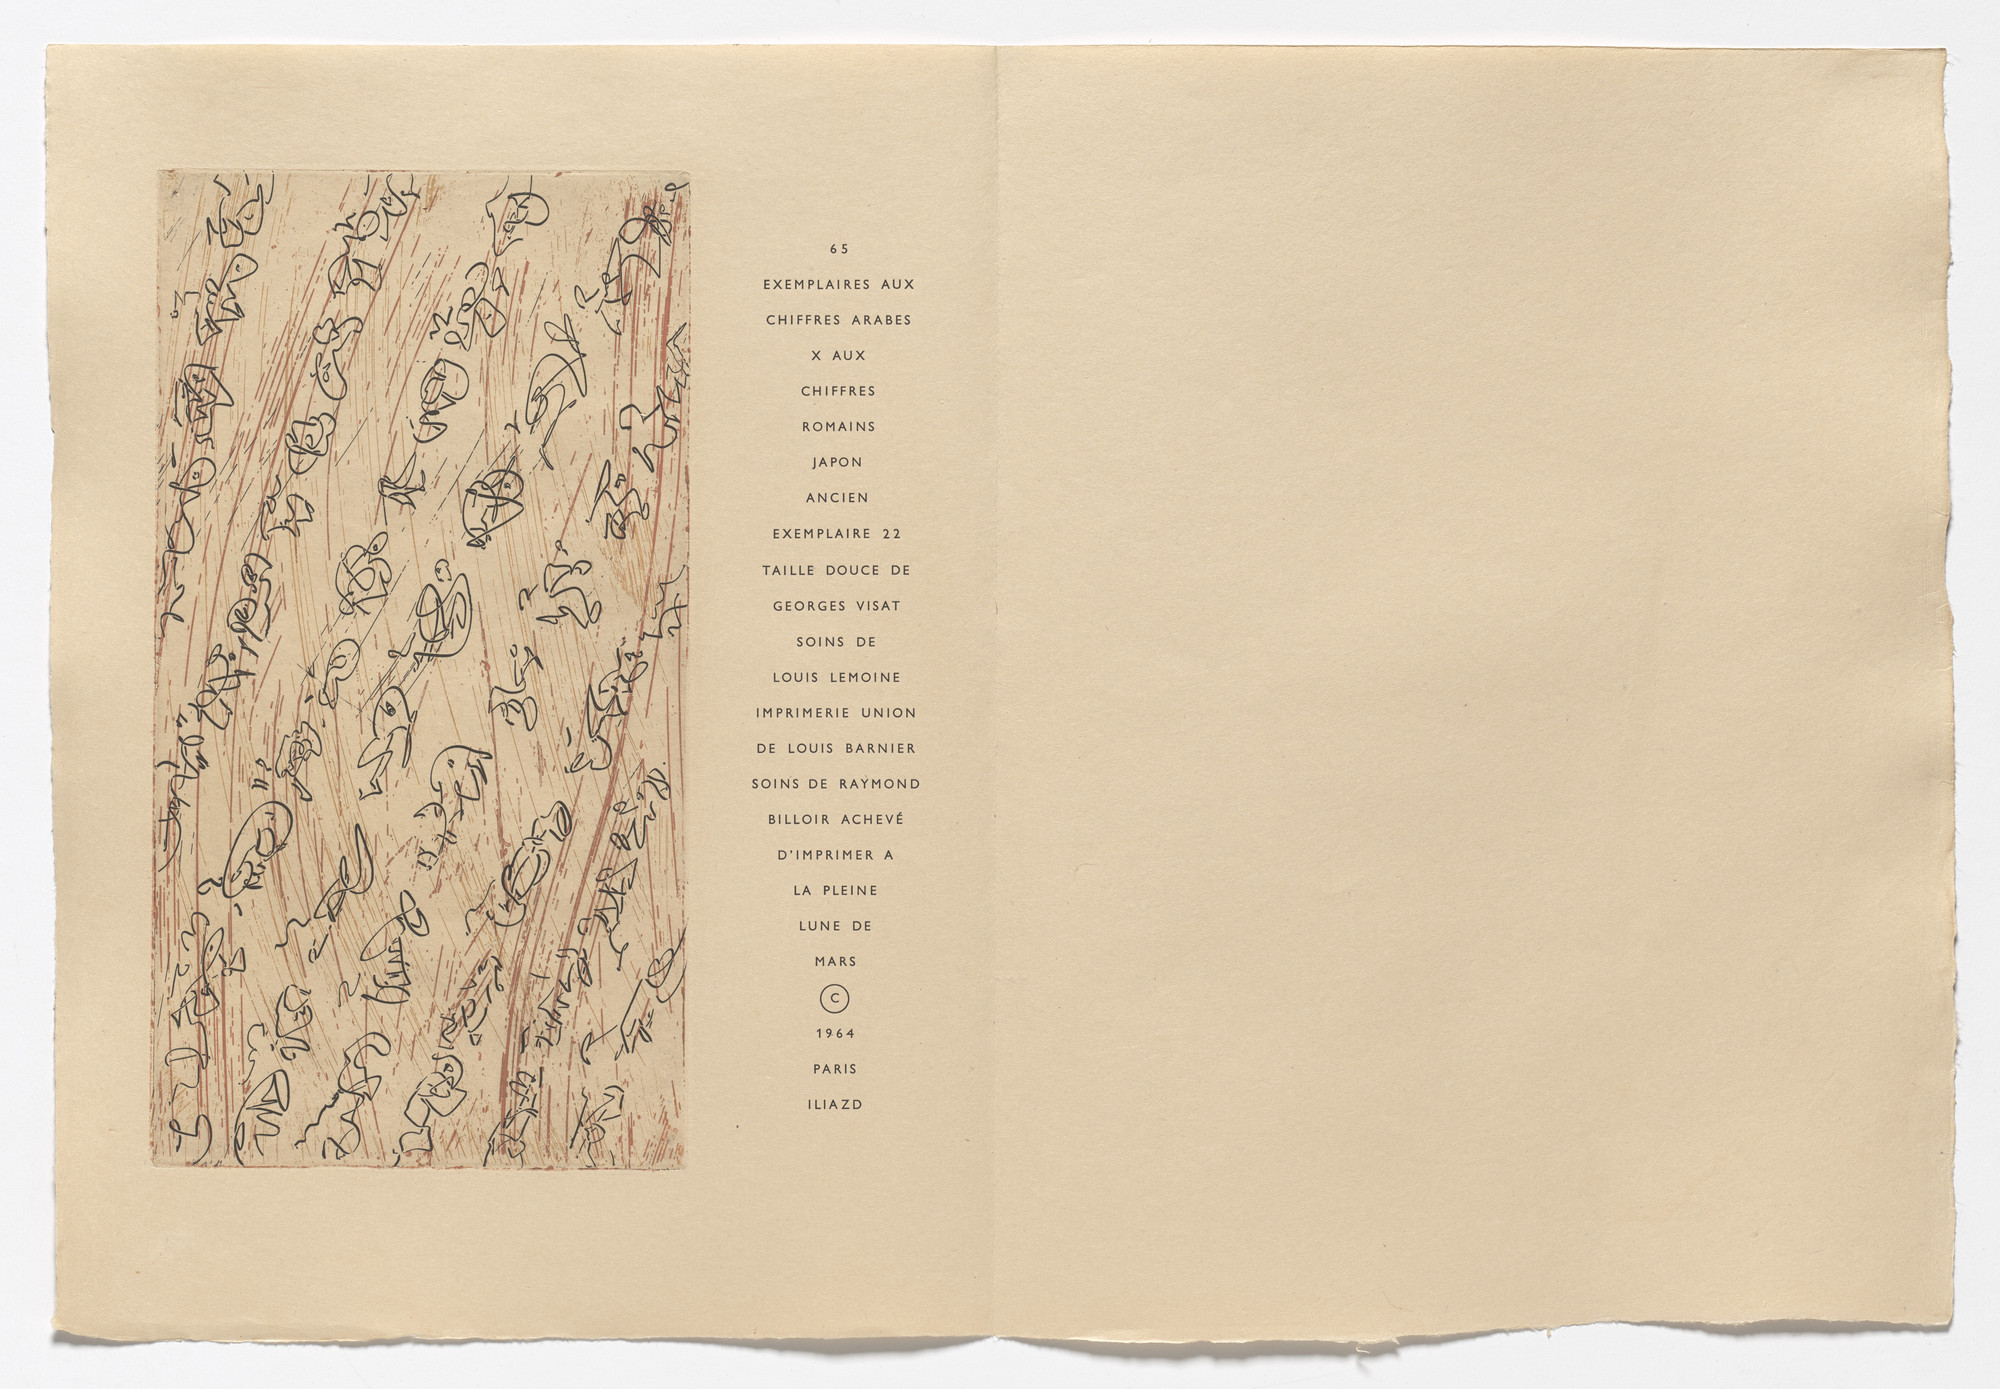 65
EXEMPLAIRES AUX
CHIFFRES ARABES
X AUX
CHIFFRES
ROMAINS
JAPON
ANCIEN
EXEMPLAIRE 22
TAILLE DOUCE DE
GEORGES VISAT
SOINS DE
LOUIS LEMOINE
IMPRIMERIE UNION
DE LOUIS BARNIER
SOINS DE RAYMOND
BILLOIR ACHEVÉ
D'IMPRIMER A
LA PLEINE
LUNE DE
MARS
©
1964
PARIS
ILIAZD